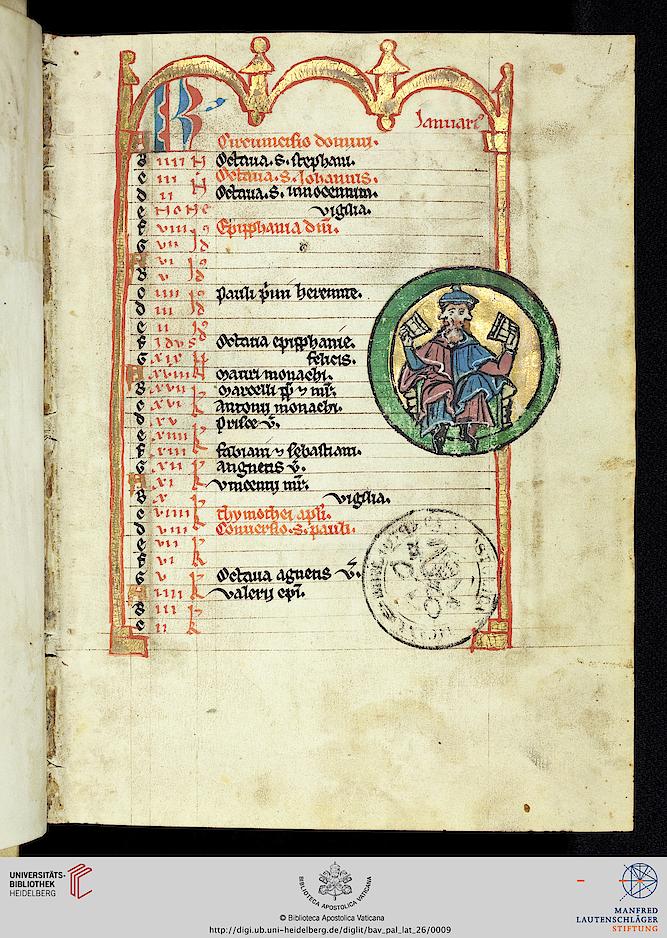 KL
Januarˢ
A Circumcisio domini.
b iiii N Octaua. S. stephani.
c iii N Octaua. S. Iohannis.
d ii N Octaua. S. innocentum.
e Nonas vigilia.
f viii Id Epiphania dni.
G vii Id
A vi Id
b v Id
c iiii Id Pauli primi heremite.
d iii Id
e ii Id
f Idus Octaua epiphanie.
G xix kl felicis.
A xviii k Mauri monachi.
b xvii k Marcelli pp ⁊ mr.
c xvi k Antonij monachi.
d xv k Prisce v.
e xiiii k
f xiii k fabiani ⁊ sebastiani.
G xii k Angnetis v.
A xi k Vincentij mr.
b x k vigilia.
c viiii k thymothei apli.
d viii k Conuersio. S. pauli.
e vii k
f vi k
G v k Octaua agnetis v.
A iiii k Valerij epi.
b iii k
c ii k
UNIVERSITÄTS-
BIBLIOTHEK
HEIDELBERG
BIBLIOTHECA APOSTOLICA VATICANA
© Biblioteca Apostolica Vaticana
http://digi.ub.uni-heidelberg.de/diglit/bav_pal_lat_26/0009
MANFRED
LAUTENSCHLÄGER
STIFTUNG